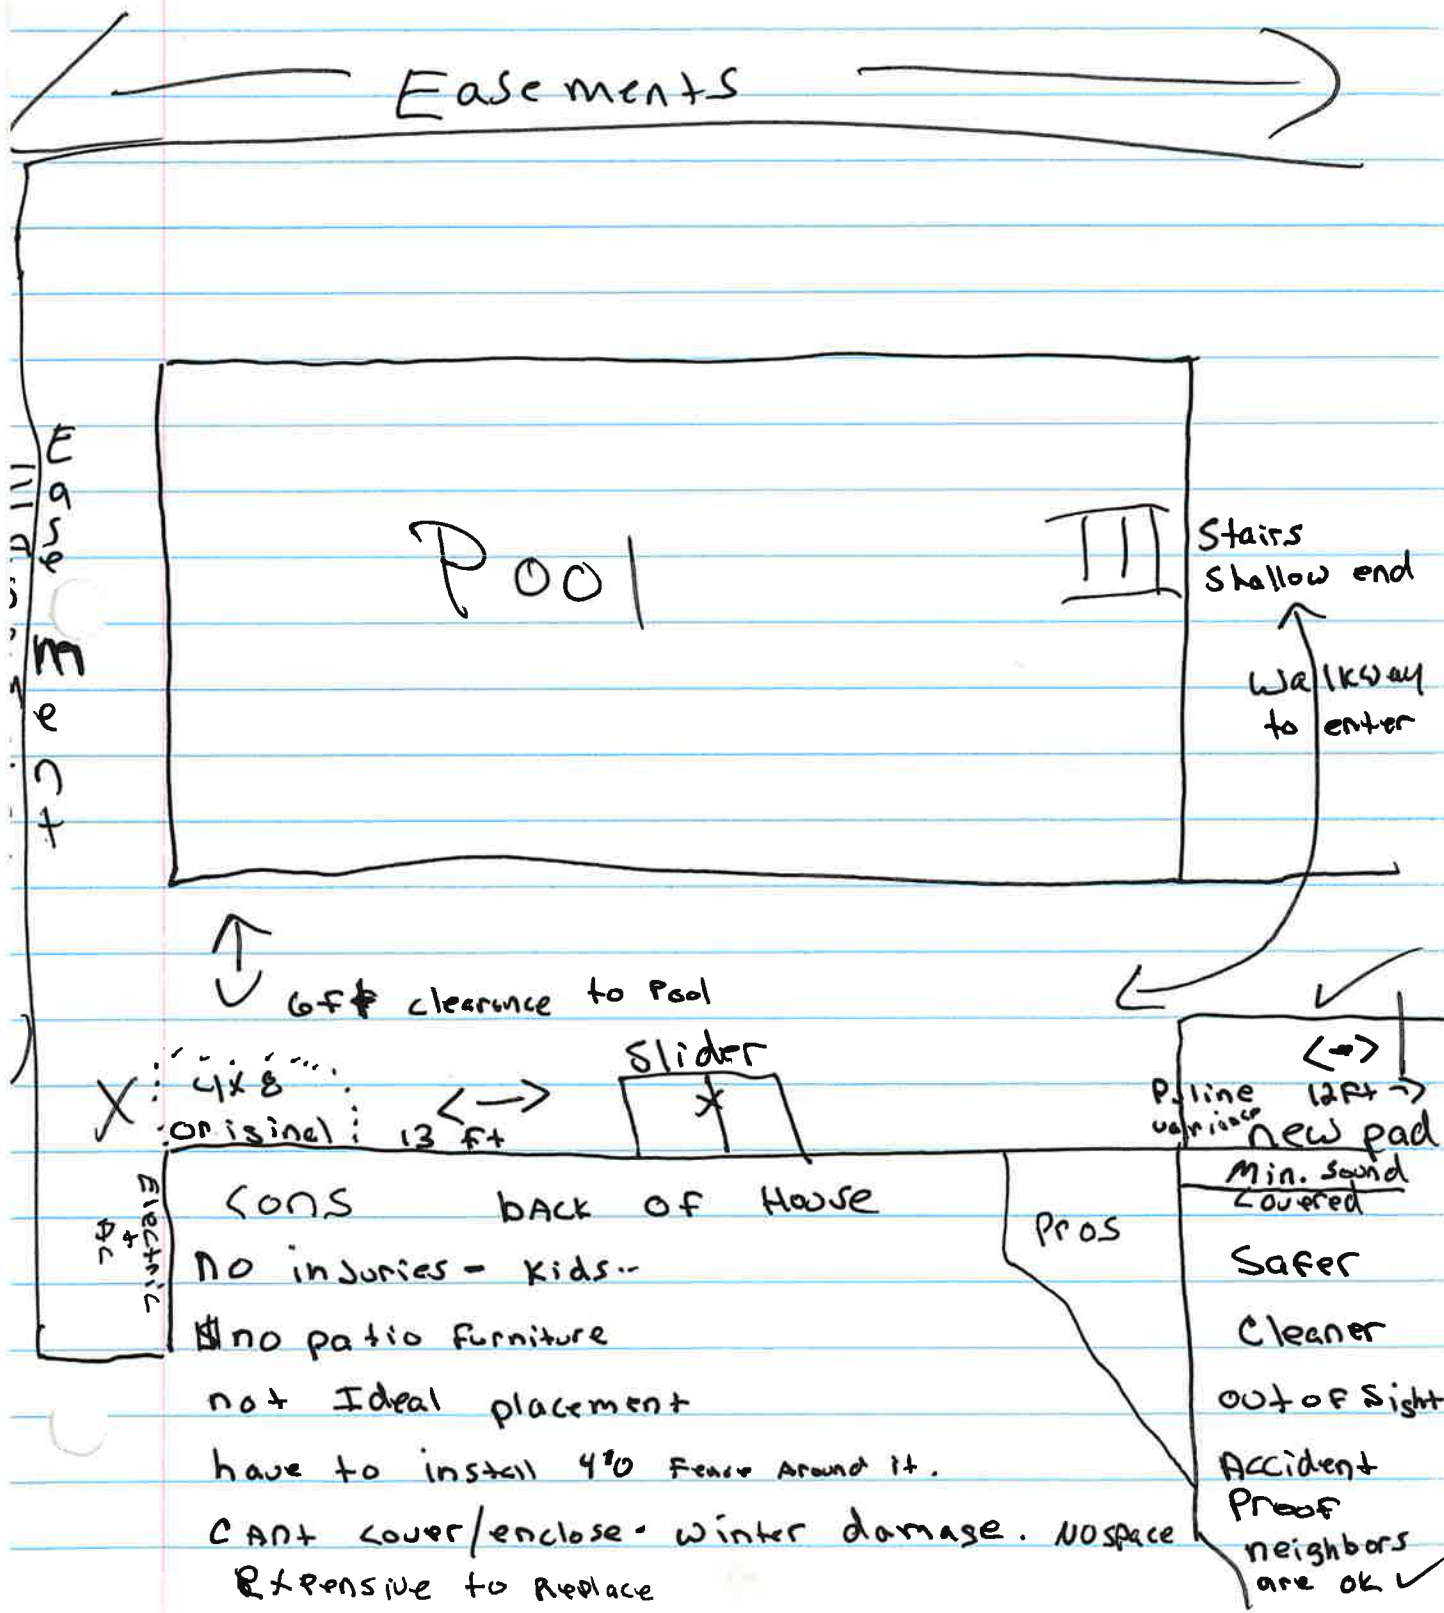 Easements
Easement
Pool
Stairs
Shallow end
Walkway
to enter
6ft clearance to Pool
Slider
4x8
original
13 ft
P. line
variance
12ft
new pad
Electric
+
Ac
Cons
back of House
no injuries - kids..
no patio furniture
not Ideal placement
have to install 4'0 Fence Around it.
CAnt cover/enclose. winter damage. No space
Expensive to Replace
Pros
Min. Sound
Covered
Safer
Cleaner
out of Sight
Accident
Proof
neighbors
are ok